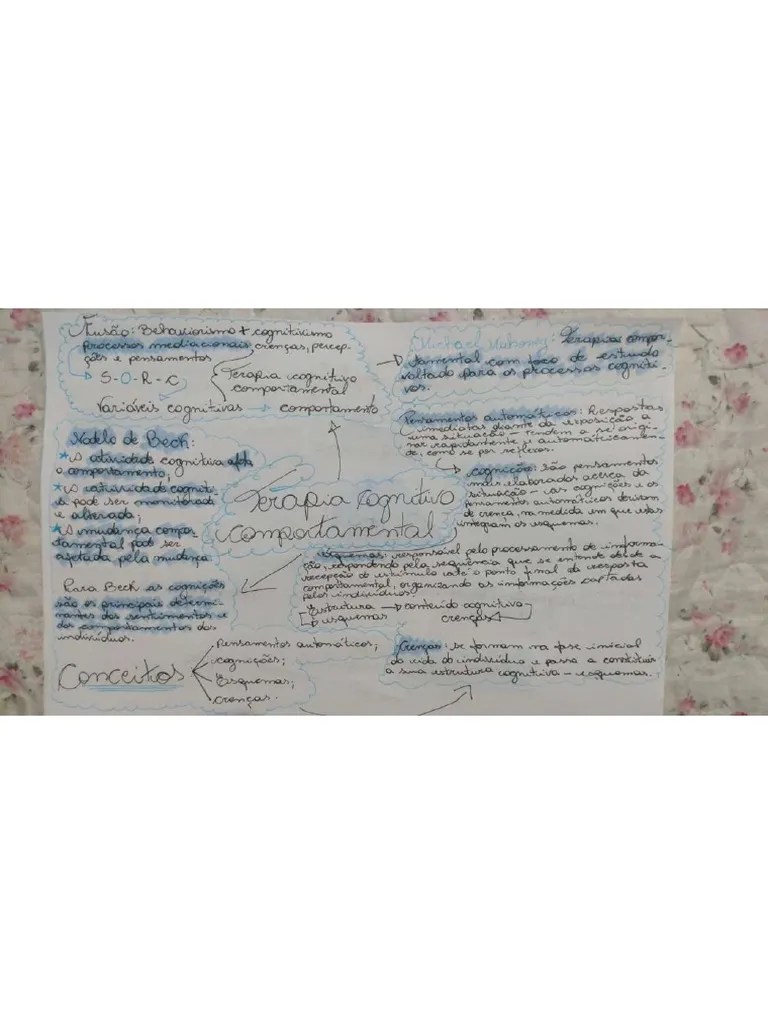 Fusão: Behaviorismo + cognitivismo
processos mediacionais, crenças, percep-
ções e pensamentos
S-O-R-C
Terapia cognitivo
comportamental
Variáveis cognitivas comportamento
Michael Mahoney: Terapia compor-
tamental com foco de estudo
voltado para os processos cogniti-
vos.
Modelo de Bech:
A atividade cognitiva afeta
o comportamento;
A atividade cogniti-
va pode ser monitorada
e alterada;
A mudança compor-
tamental pode ser
afetada pela mudança
Para Bech as cognições
são os principais determi-
nantes dos sentimentos e
dos comportamentos dos
indivíduos.
Terapia Cognitivo
comportamental
Pensamentos automáticos: Respostas
imediatas diante da exposição a
uma situação - tendem a se origi-
nar rapidamente e automaticamen-
te, como se por reflexos.
cognição: são pensamentos
mais elaborados acerca da
situação - as cognições e os
pensamentos automáticos derivam
de crença, na medida em que estas
integram os esquemas.
Esquemas: responsável pelo processamento de informa-
ção, respondendo pela sequência que se entende desde a
recepção do estímulo até o ponto final da resposta
comportamental, organizando as informações captadas
pelos indivíduos.
Estrutura conteúdo cognitivo
esquemas crenças
Conceitos
Pensamentos automáticos;
cognições;
Esquemas;
crenças.
Crenças: Se formam na fase inicial
da vida do indivíduo e passa a constituir
a sua estrutura cognitiva - esquemas.